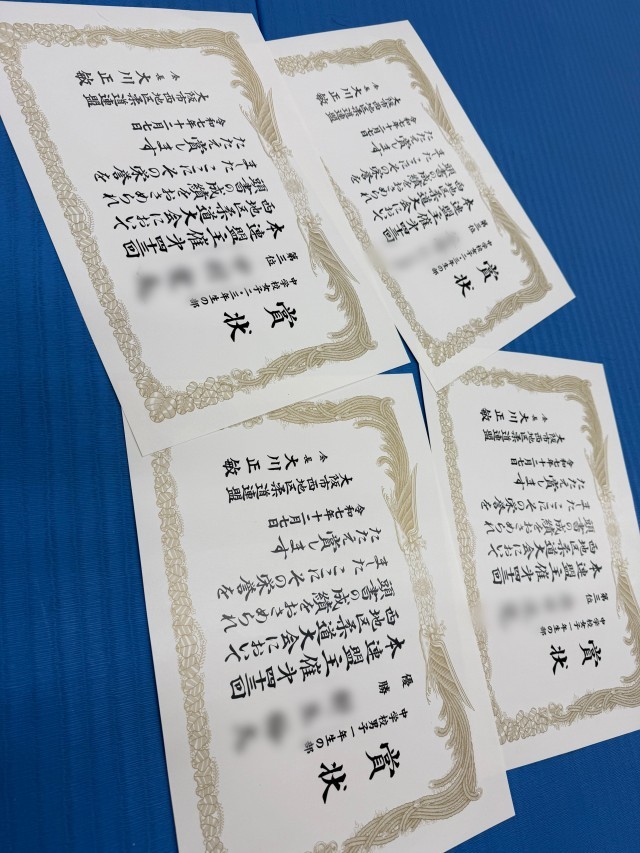 賞状
中学校女子二・三年生の部
第三位
本連盟主催第四十三回
西地区柔道大会において
頭書の成績をおさめられ
ました ここにその栄誉を
たたえ賞します
令和七年十二月七日
大阪市西地区柔道連盟
会長 大川正敏
賞状
中学校女子二・三年生の部
第三位
本連盟主催第四十三回
西地区柔道大会において
頭書の成績をおさめられ
ました ここにその栄誉を
たたえ賞します
令和七年十二月七日
大阪市西地区柔道連盟
会長 大川正敏
賞状
中学校男子一年生の部
優勝
本連盟主催第四十三回
西地区柔道大会において
頭書の成績をおさめられ
ました ここにその栄誉を
たたえ賞します
令和七年十二月七日
大阪市西地区柔道連盟
会長 大川正敏
賞状
中学校女子一年生の部
第三位
本連盟主催第四十三回
西地区柔道大会において
頭書の成績をおさめられ
ました ここにその栄誉を
たたえ賞します
令和七年十二月七日
大阪市西地区柔道連盟
会長 大川正敏